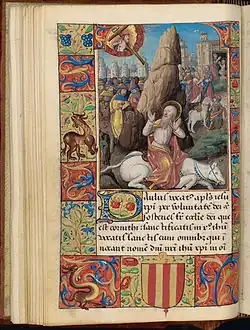 Paulus vocat⁹ apl̄s iesu
xpi per voluntatē dei et
sostenes fr̄ ecclīe dei que
est corinthi sanctificatis in x̄ ihū
vocatis sanctis cum omnib⁹ qui i
nvocant nomē dn̄i nr̄i ihū xpi in oī